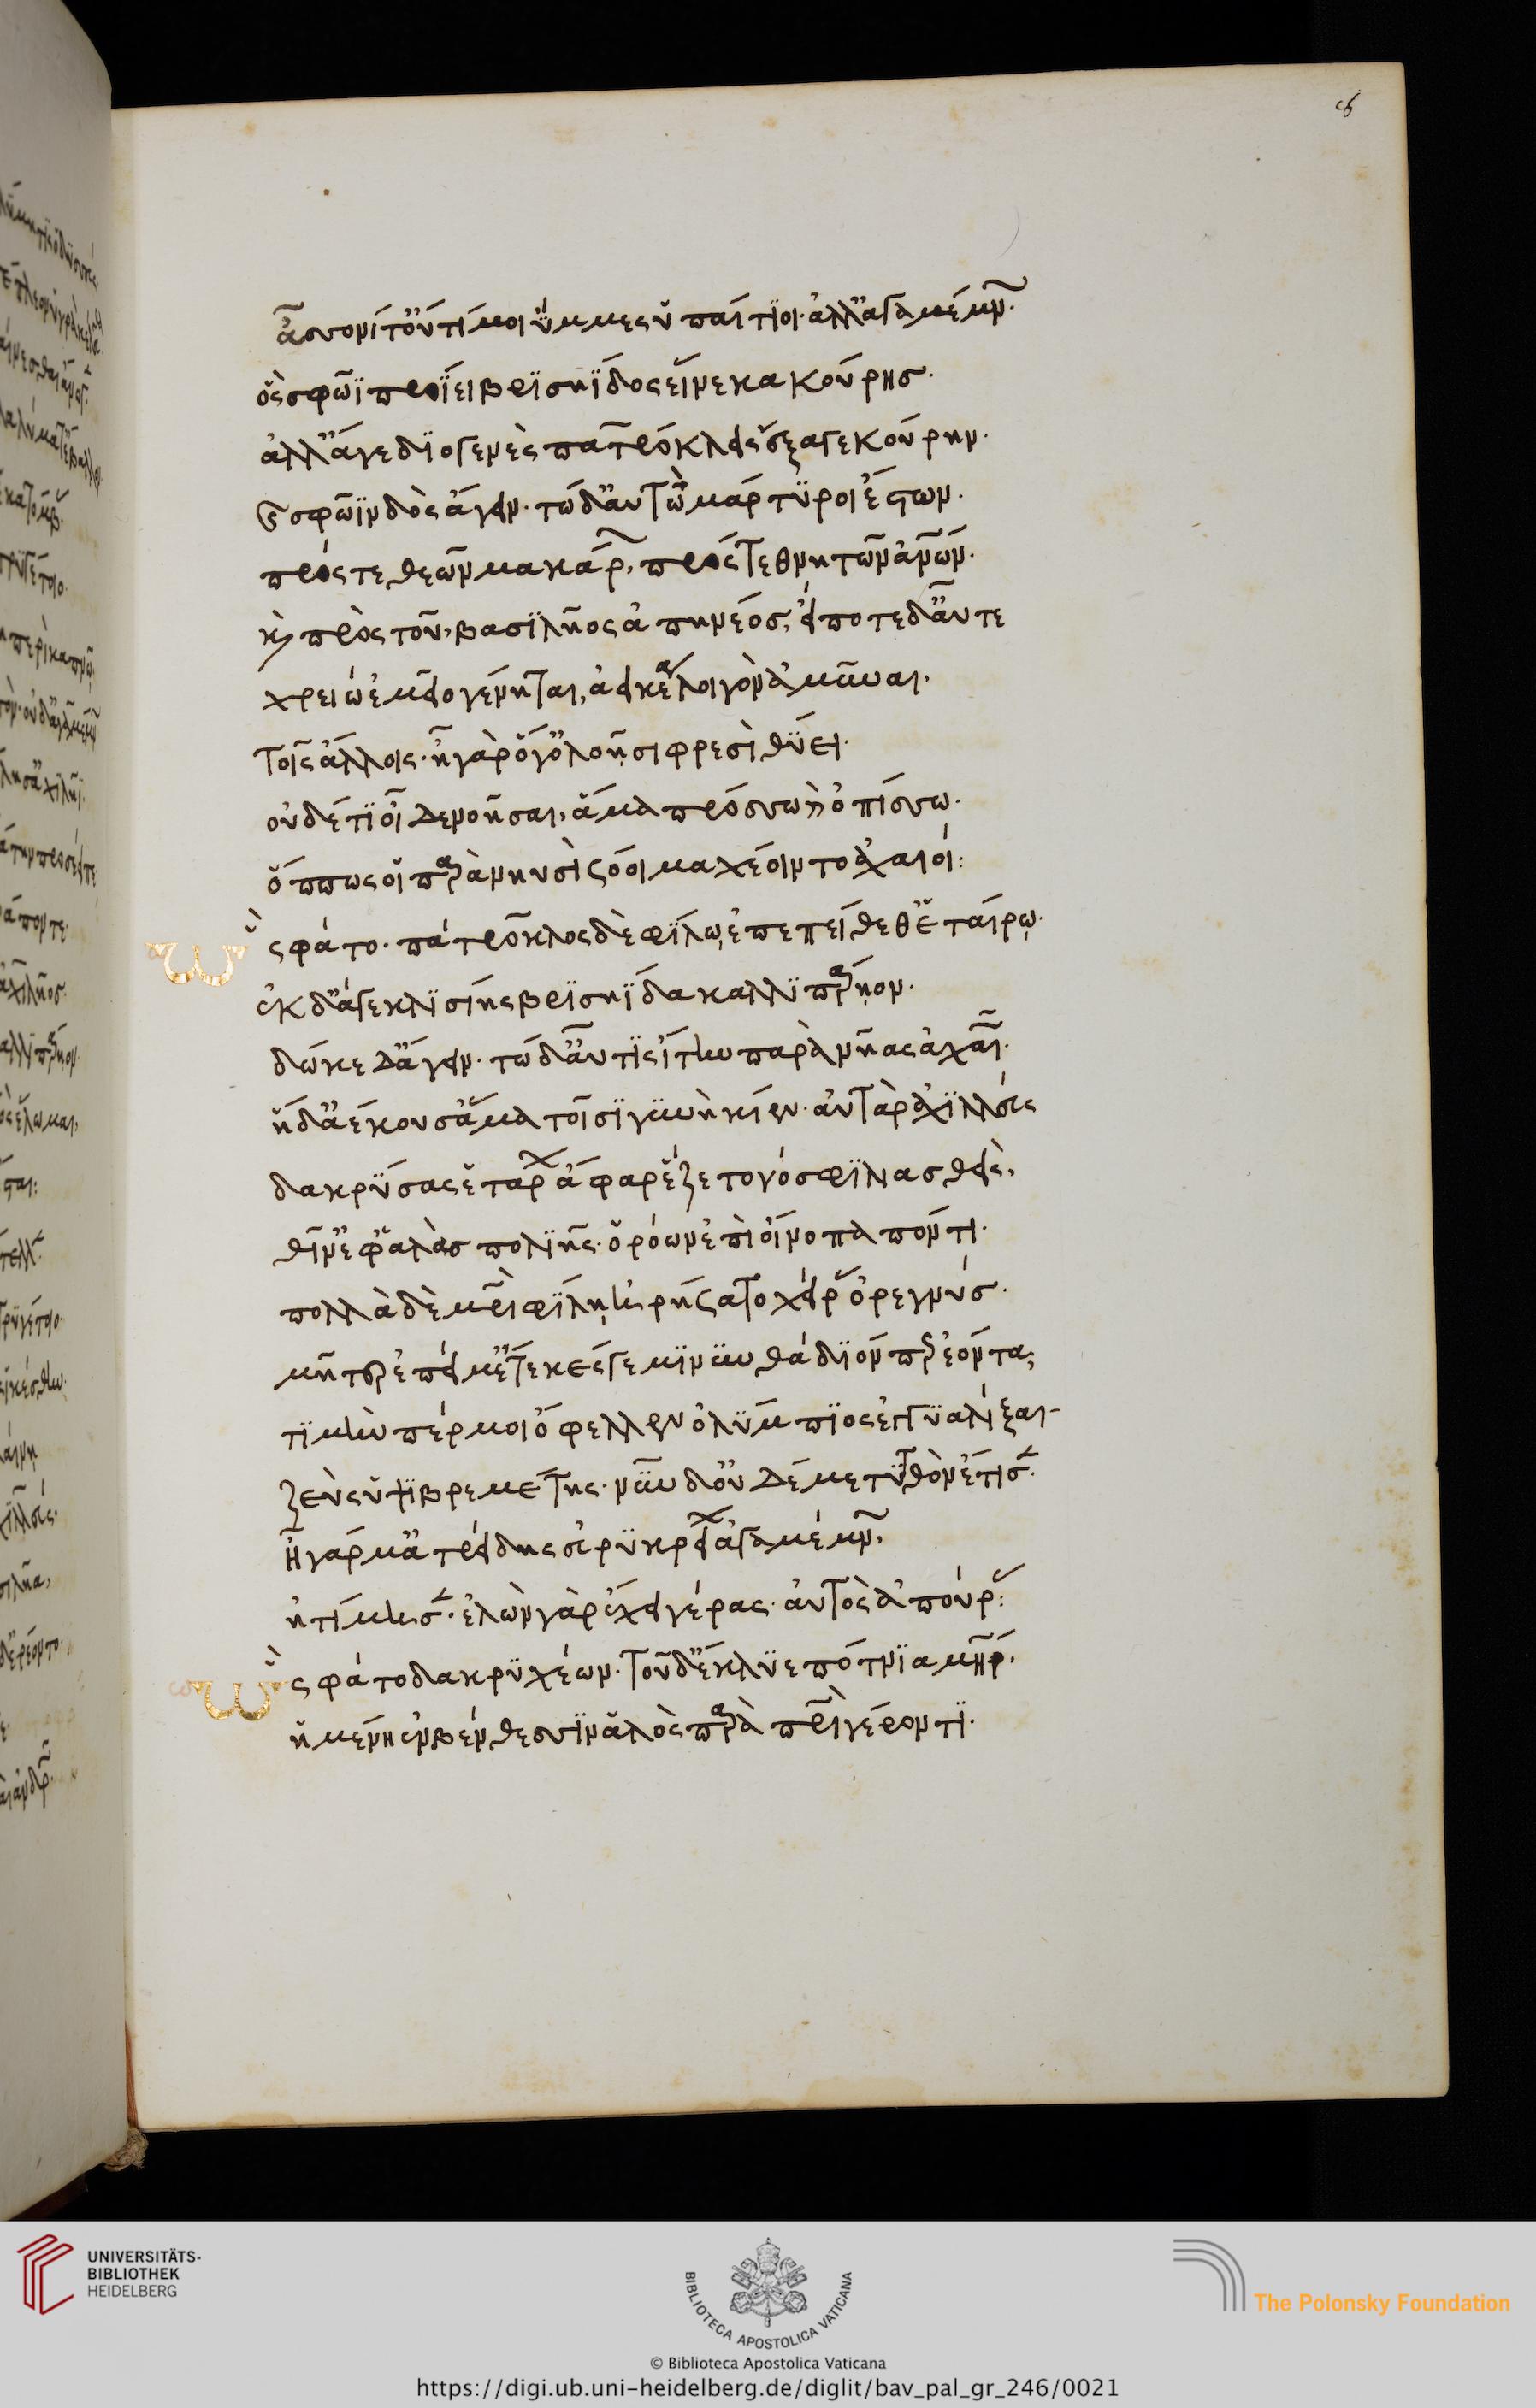 ἆσσον ἴτ' οὔ τί μοι ὔμμες ἐπαίτϊοι· ἀλλ' ἀγαμέμνων·
ὃς σφῶϊ προΐει βρισηΐδος εἵνεκα κούρης·
ἀλλ' ἄγε διογενὲς πατρόκλεις ἔξαγε κούρην·
καὶ σφῶϊν δὸς ἄγειν· τὼ δ' αὐτὼ μάρτυροι ἔστων·
πρός τε θεῶν μακάρων, πρός τε θνητῶν ἀνθρώπων·
καὶ πρὸς τοῦ βασιλῆος ἀπηνέος, εἴ ποτε δ' αὖτε
χρειὼ ἐμεῖο γένηται, ἀεικέα λοιγὸν ἀμῦναι,
τοῖς ἄλλοις· ἦ γὰρ ὅ γ' ὀλοῇσι φρεσὶ θύει·
οὐδέ τι οἶδε νοῆσαι, ἅμα πρόσσω καὶ ὀπίσσω·
ὅππως οἱ παρὰ νηυσὶ σόοι μαχέοιντο ἀχαιοί:
ὣς φάτο· πάτροκλος δὲ φίλῳ ἐπεπείθεθ' ἑταίρῳ·
ἐκ δ' ἄγε κλισίης βρισηΐδα καλλιπάρῃον·
δῶκε δ' ἄγειν· τὼ δ' αὖτις ἴτην παρὰ νῆας ἀχαιῶν·
ἡ δ' ἀέκουσ' ἅμα τοῖσι γυνὴ κίεν· αὐτὰρ ἀχιλλεὺς
δακρύσας ἑτάρων ἄφαρ ἕζετο νόσφι λιασθείς,
θῖν' ἔφ' ἁλὸς πολιῆς· ὁρόων ἐπὶ οἴνοπα πόντον·
πολλὰ δὲ μητρὶ φίλῃ ἠρήσατο χεῖρας ὀρεγνύς·
μῆτερ ἐπεί μ' ἔτεκές γε μινυνθάδιόν περ ἐόντα,
τιμήν πέρ μοι ὄφελλεν ὀλύμπιος ἐγγυαλίξαι·
ζεὺς ὑψιβρεμέτης· νῦν δ' οὐδέ με τυτθὸν ἔτισεν·
ἦ γάρ μ' ἀτρείδης εὐρυκρείων ἀγαμέμνων,
ἠτίμησεν· ἑλὼν γὰρ ἔχει γέρας· αὐτὸς ἀπούρας:
ὣς φάτο δακρυχέων· τοῦ δ' ἔκλυε πότνια μήτηρ,
ἡμένη ἐν βένθεσσιν ἁλὸς παρὰ πατρὶ γέροντι·
UNIVERSITÄTS-
BIBLIOTHEK
HEIDELBERG
BIBLIOTECA APOSTOLICA VATICANA
The Polonsky Foundation
© Biblioteca Apostolica Vaticana
https://digi.ub.uni-heidelberg.de/diglit/bav_pal_gr_246/0021